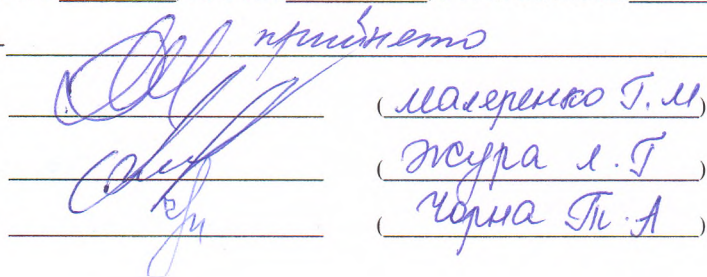 прийнято
(Маляренко Г.М)
(Жура Л.Г)
(Чорна Т.А)